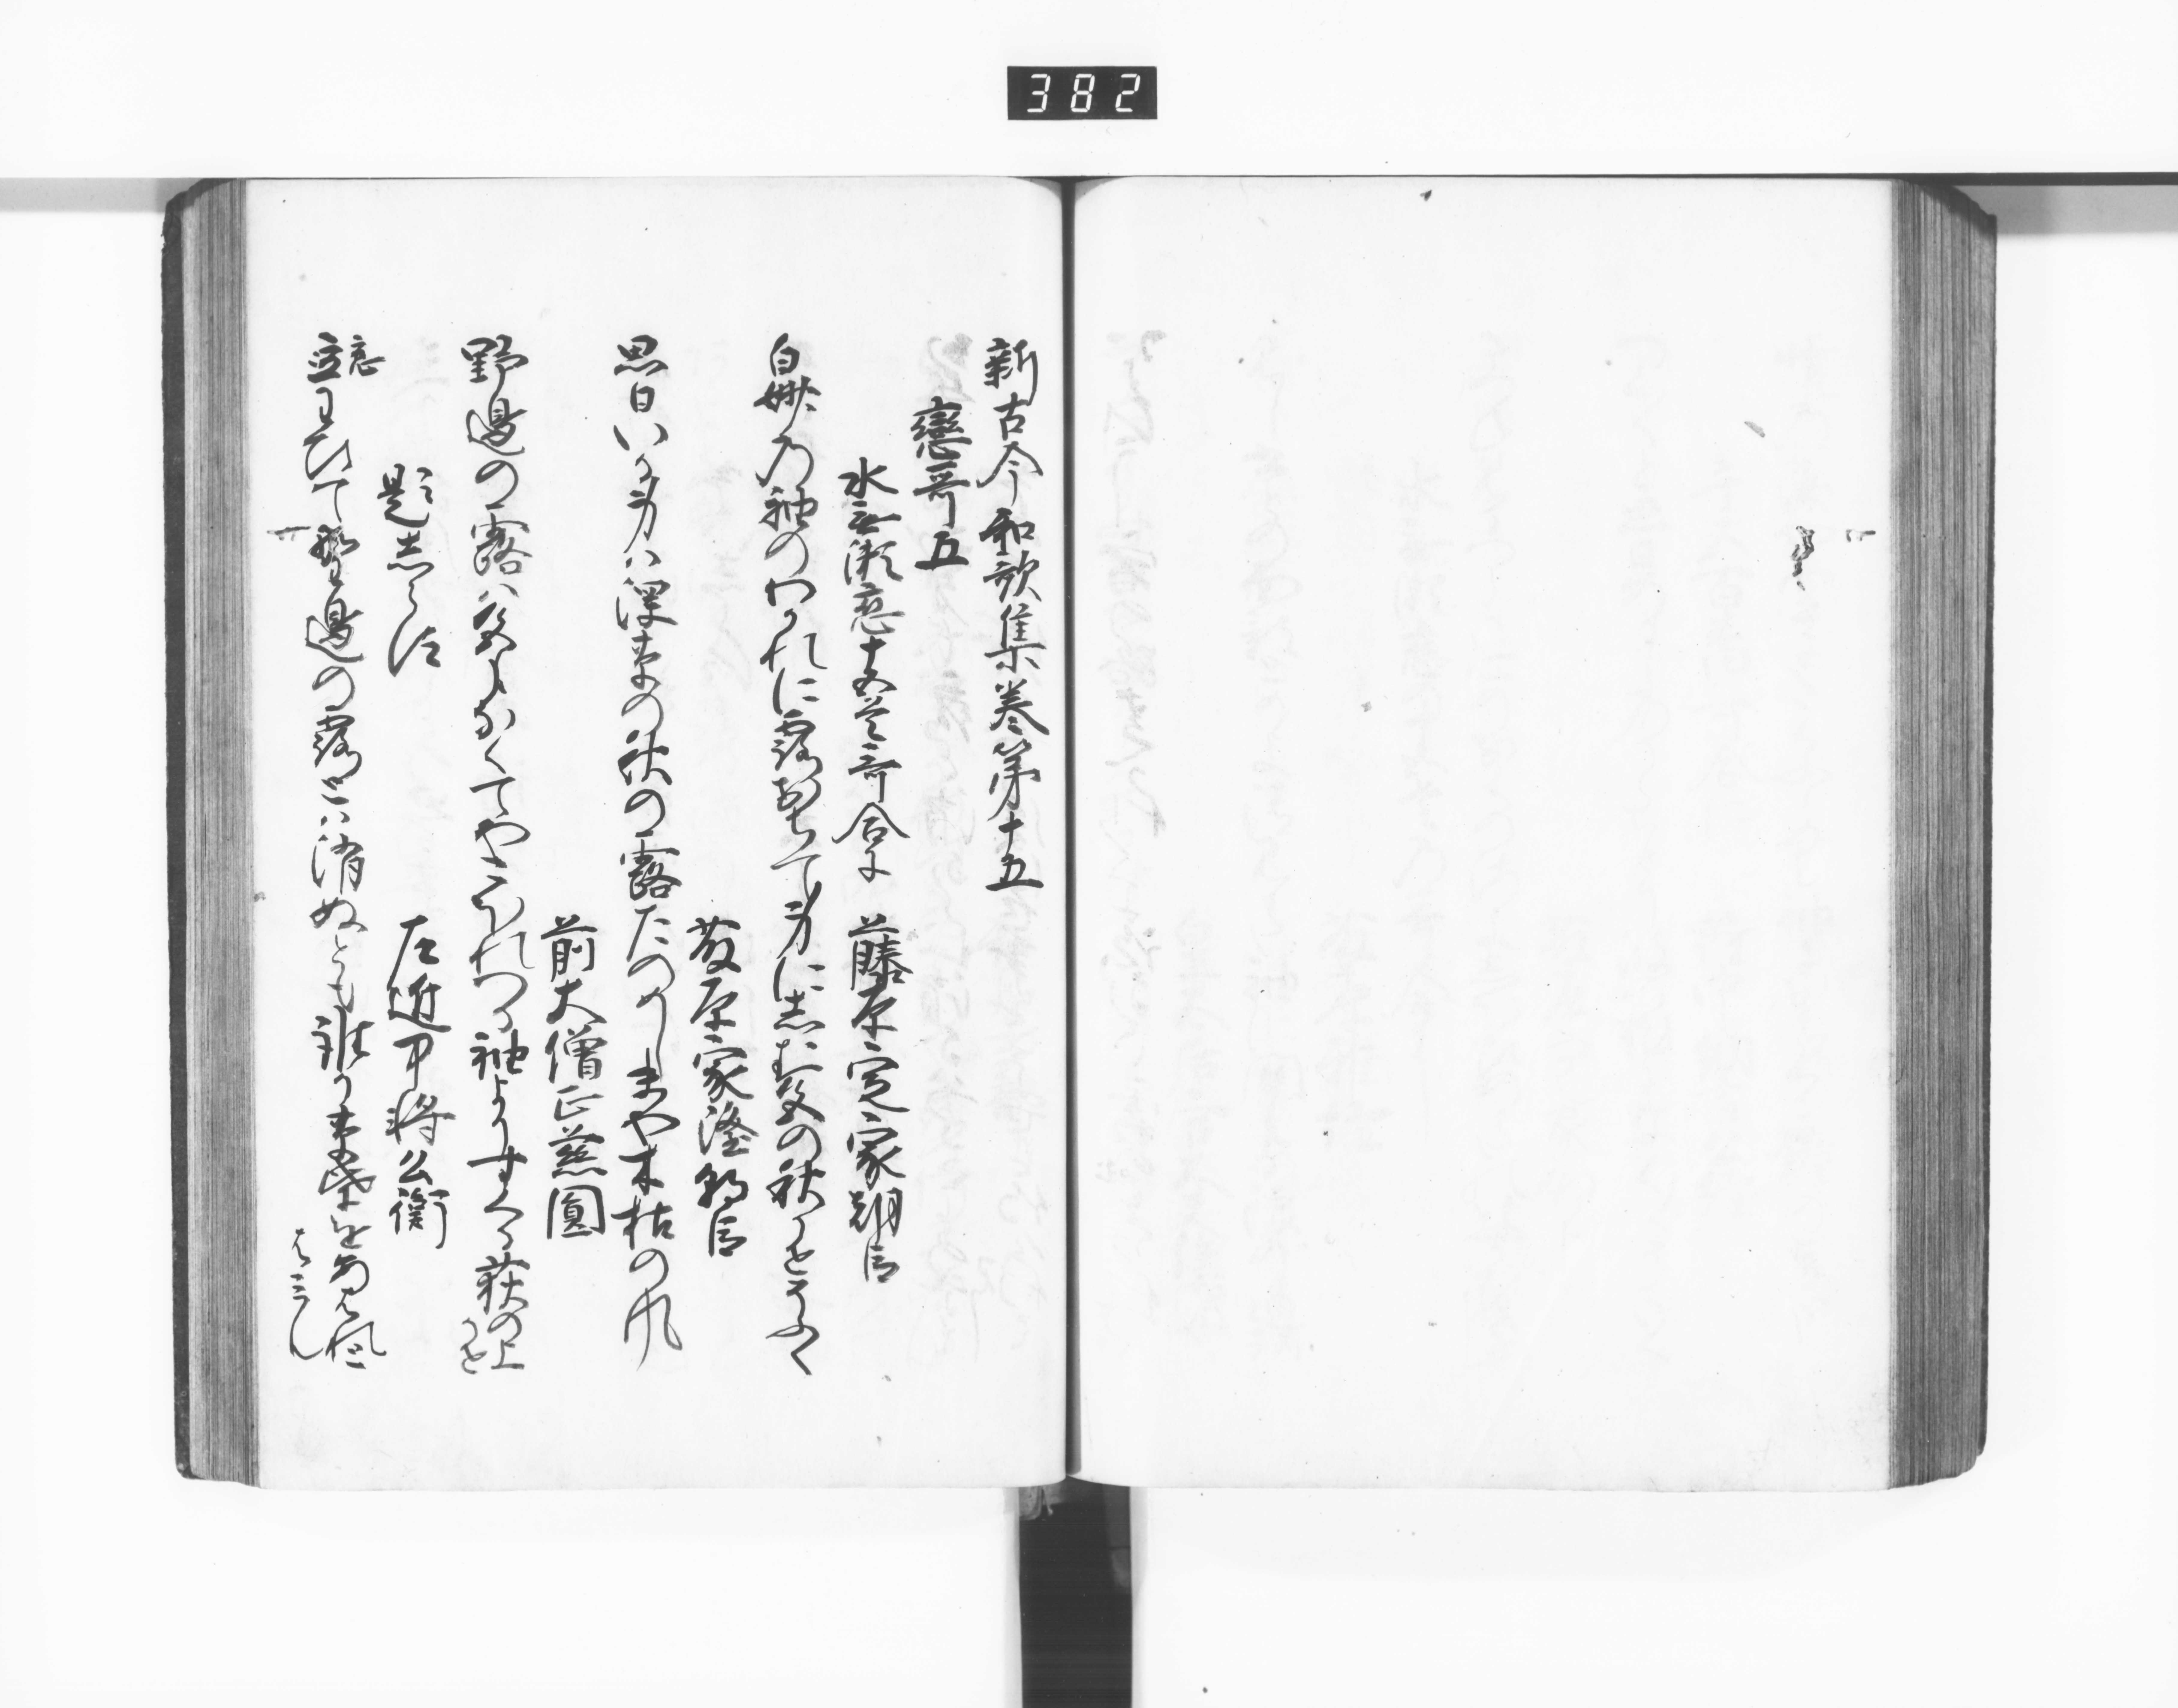 382
新古今和歌集巻第十五
戀哥五
水無瀬恋十五首哥合に　藤原定家朝臣
白妙乃袖のわかれに露おちて身にしむ色の秋かせそふく
藤原家隆朝臣
思日いる身ハ深草の秋の露たのめしすゑや木枯の風
前大僧正慈圓
野邊の露ハ色もなくてやこほれつる袖よりすくる荻の上かせ
題志らす
左近中将公衡
恋わひて野邊の露とハ消ぬとも誰か草葉を哀とはみん